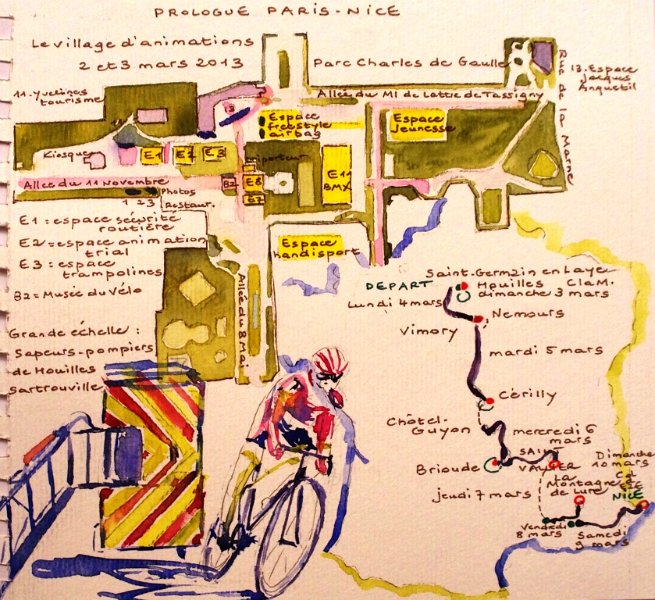 PROLOGUE PARIS-NICE
Le village d'animations
2 et 3 mars 2013
Parc Charles de Gaulle
11.Yvelines
tourisme
Allée du Ml de Lattre de Tassigny
Rue de la Marne
13.Espace
Jacques
Anquetil
Espace
freestyle
airbag
Espace
Jeunesse
Kiosque
E1
E2
E3
E11
BMX
Allée du 11 Novembre
B2
E8
Photos
1 2 3
Restaur.
E1 = espace sécurité
routière
E2 = espace animation
trial
E3 = espace
trampolines
B2 = Musée du Vélo
Espace
handisport
Allée du 8 Mai
Grande échelle :
Sapeurs-pompiers
de Houilles
Sartrouville
Saint-Germain en Laye
DEPART
Houilles ClaM.
dimanche 3 mars
Lundi 4 mars
Nemours
Vimory
mardi 5 mars
Cérilly
Châtel-
Guyon
mercredi 6
mars
SAINT
VALLIER
Brioude
jeudi 7 mars
La
Montagne
de Lure
Dimanche
10 mars
Col
NICE
Vendredi
8 mars
Samedi
9 mars